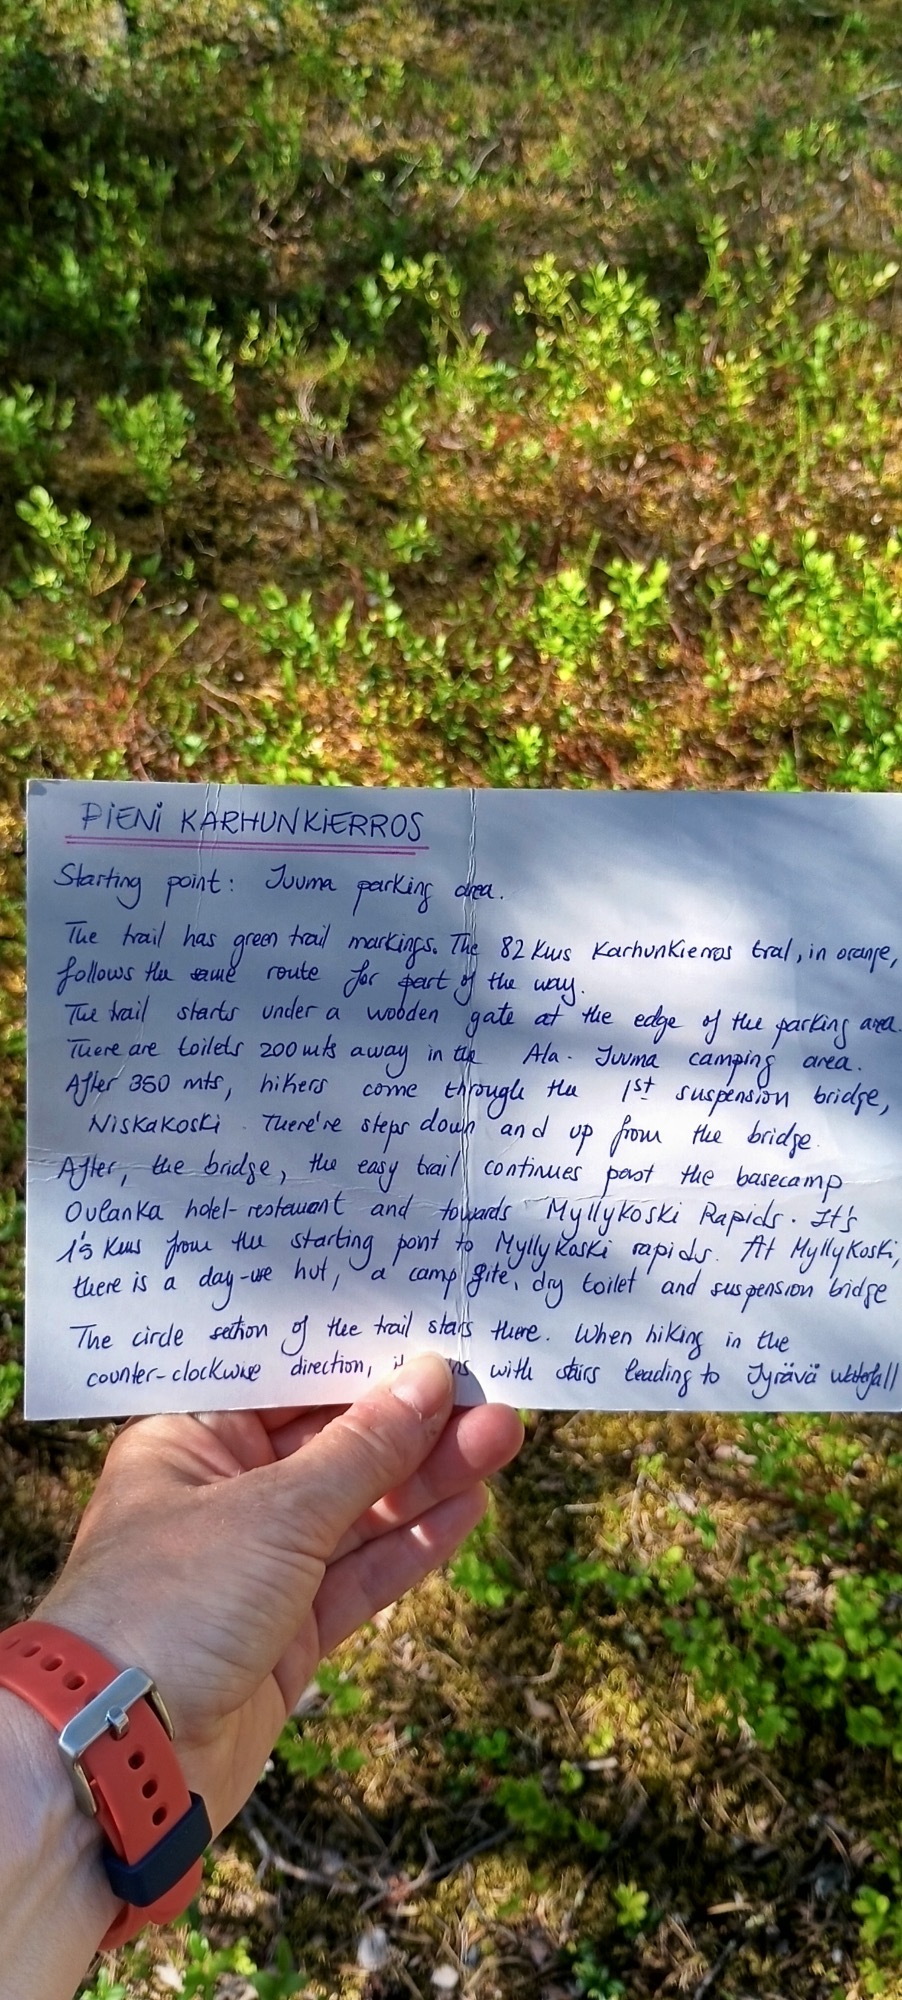 PIENI KARHUNKIERROS
Starting point: Juuma parking area.
The trail has green trail markings. The 82 Kms Karhunkierros tral, in orange,
follows the same route for part of the way.
The trail starts under a wooden gate at the edge of the parking area.
There are toilets 200 mts away in the Ala-Juuma camping area.
After 350 mts, hikers come through the 1st suspension bridge,
Niskakoski. There're steps down and up from the bridge.
After, the bridge, the easy trail continues past the basecamp
Oulanka hotel-restaurant and towards Myllykoski Rapids. It's
1'5 Kms from the starting point to Myllykoski rapids. At Myllykoski,
there is a day-use hut, a camp site, dry toilet and suspension bridge
The circle section of the trail stars there. When hiking in the
counter-clockwise direction, with stairs leading to Jyrävä waterfall